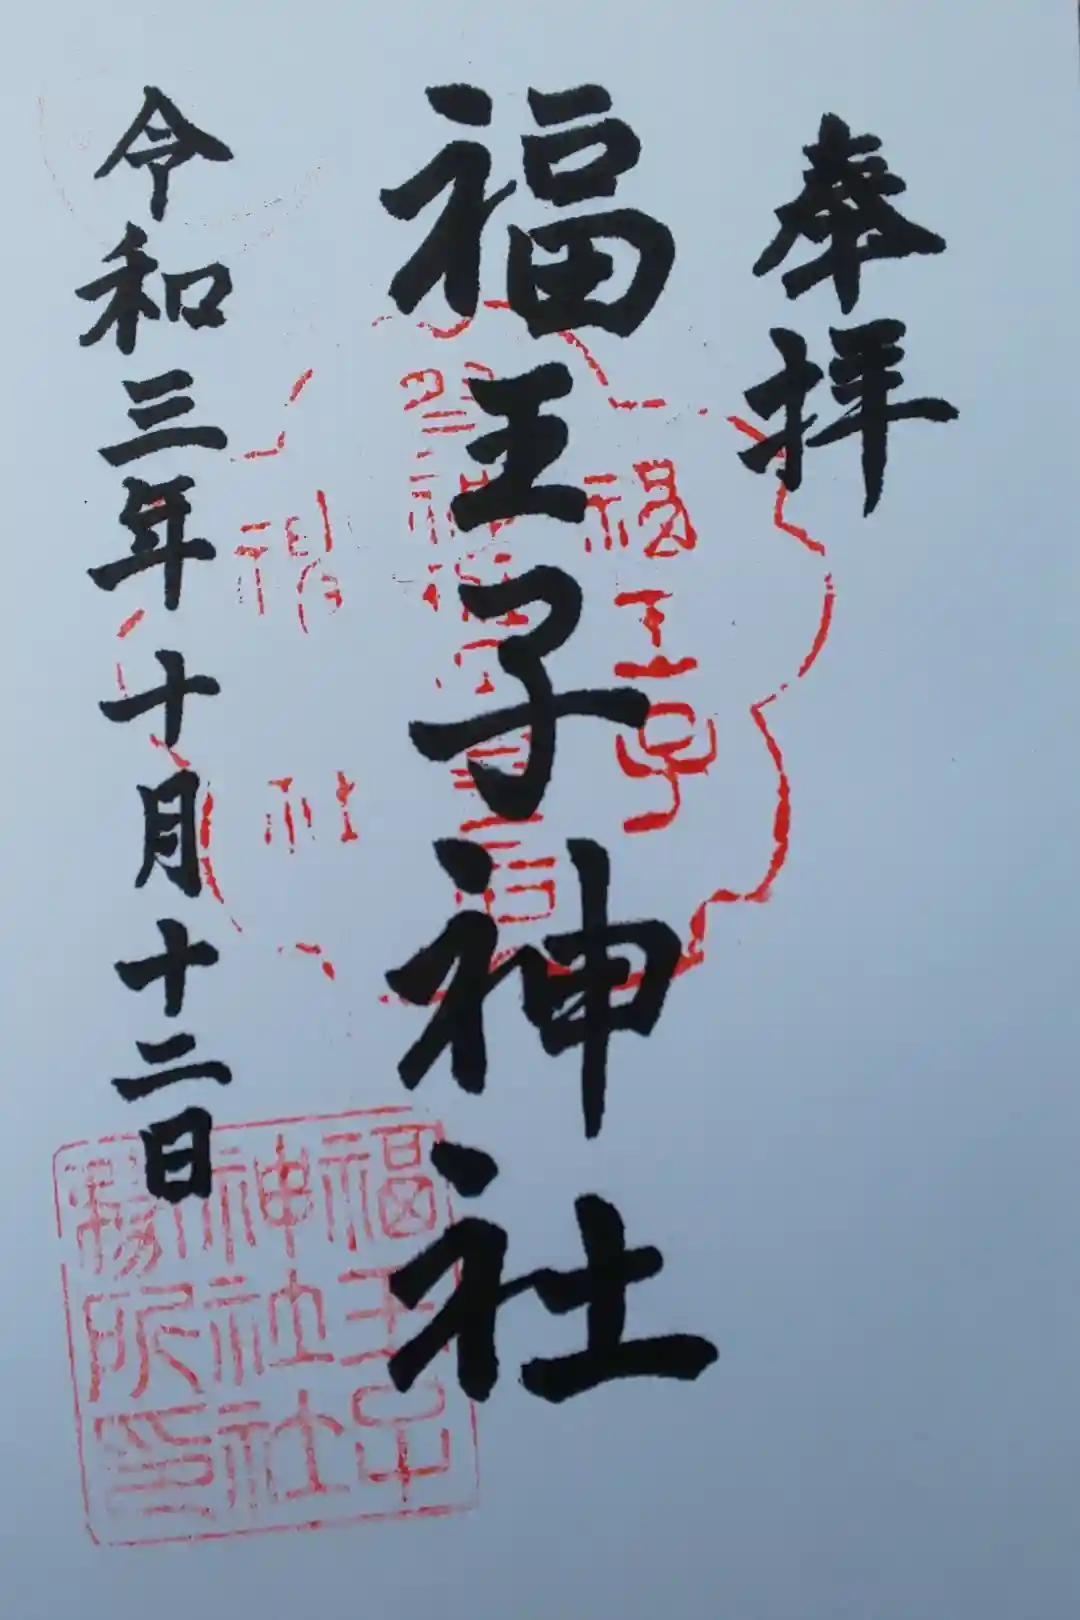 奉拝
福王子神社
令和三年十月十二日
福王子
神社社
務所印